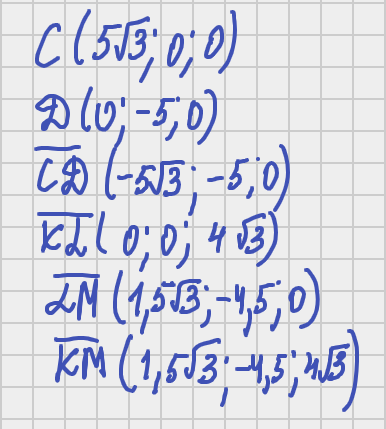 C (5√3; 0; 0)
D (0; -5; 0)
C̅D̅ (-5√3; -5; 0)
K̅L̅ (0; 0; 4√3)
L̅M̅ (1,5√3; -4,5; 0)
K̅M̅ (1,5√3; -4,5; 4√3)